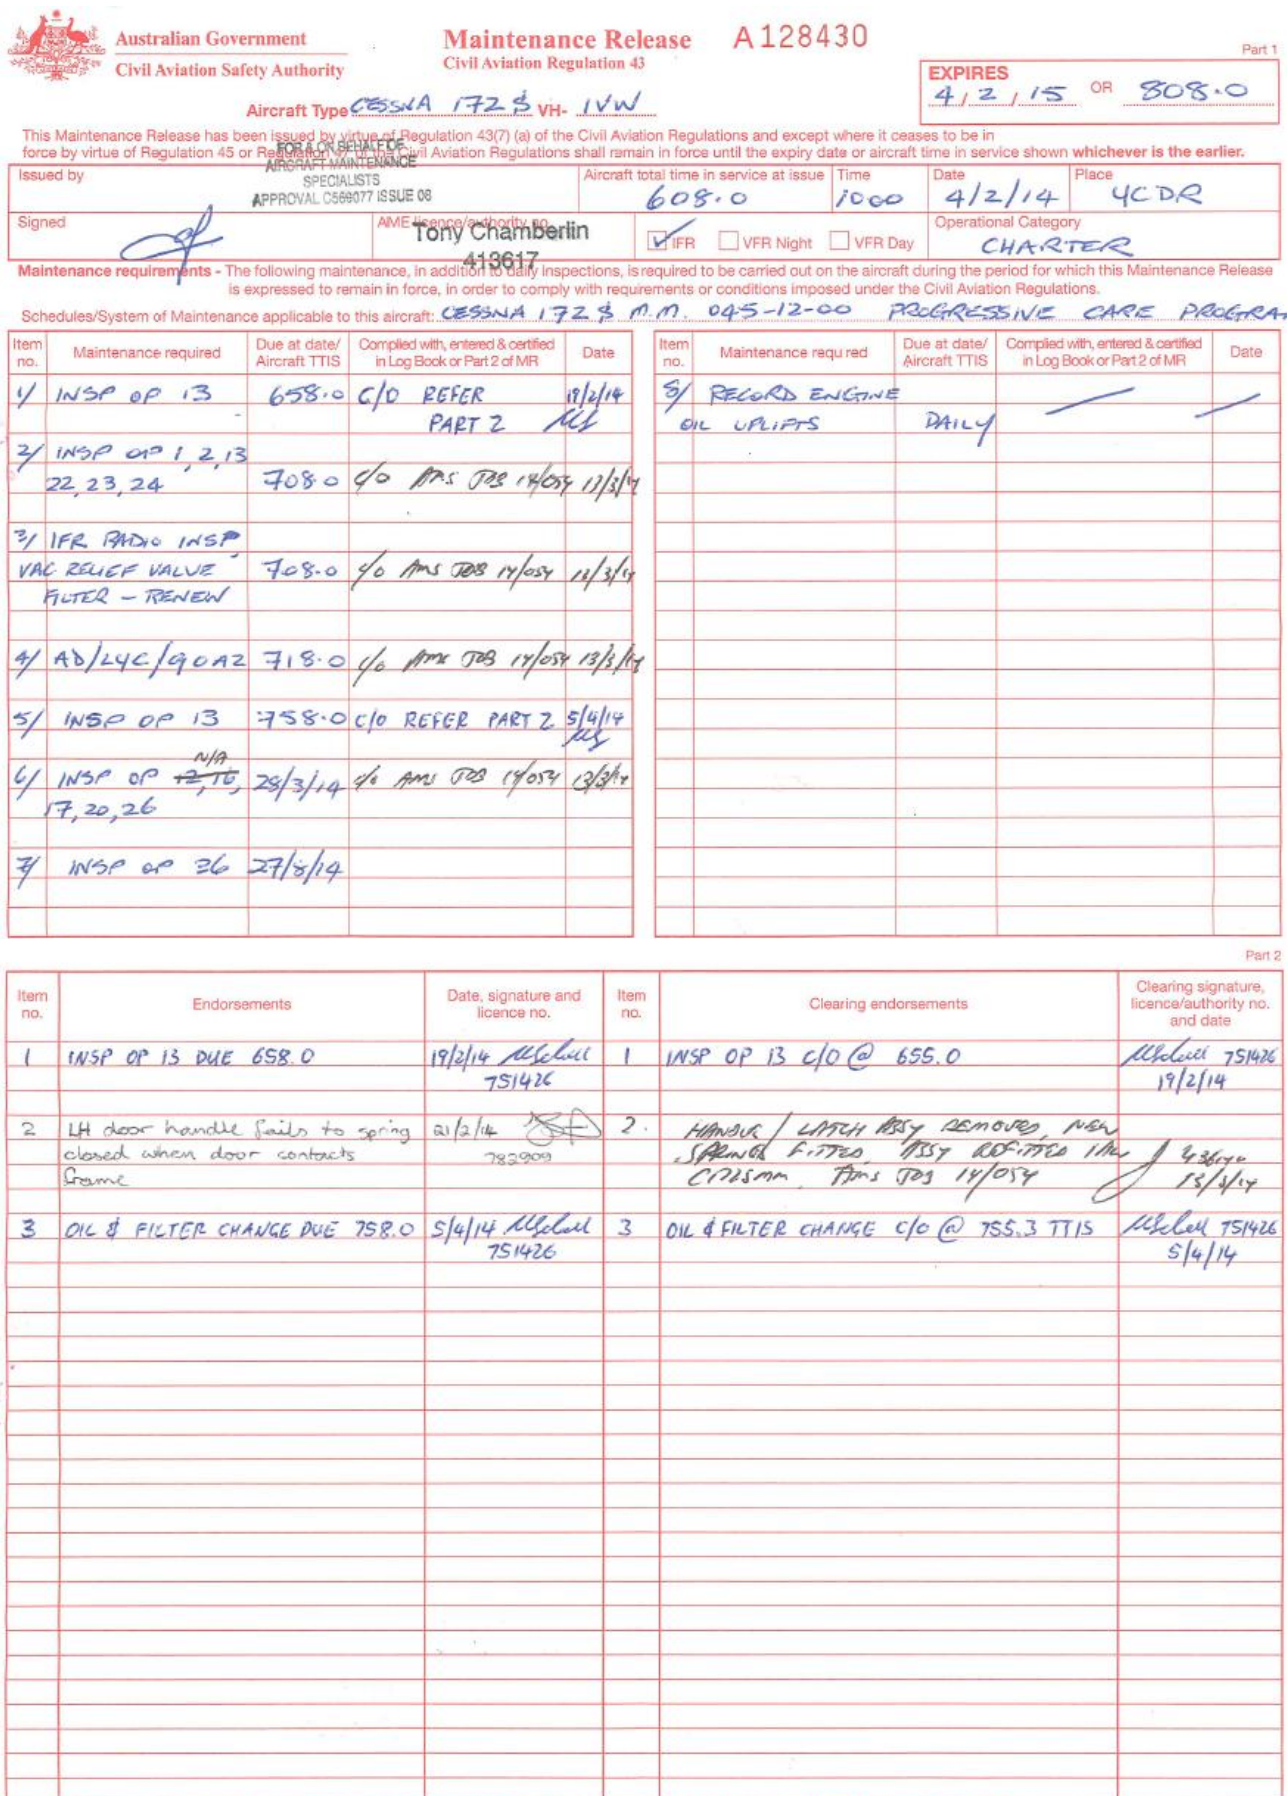 Australian Government
Civil Aviation Safety Authority
Maintenance Release A128430
Civil Aviation Regulation 43
Part 1
EXPIRES
4/2/15 OR 808.0
Aircraft Type CESSNA 172 S VH- IVW
This Maintenance Release has been issued by virtue of Regulation 43(7) (a) of the Civil Aviation Regulations and except where it ceases to be in
force by virtue of Regulation 45 or Regulation 47 of the Civil Aviation Regulations shall remain in force until the expiry date or aircraft time in service shown whichever is the earlier.
Issued by
FOR & ON BEHALF OF
AIRCRAFT MAINTENANCE
SPECIALISTS
APPROVAL C569077 ISSUE 08
Aircraft total time in service at issue
608.0
Time
1000
Date
4/2/14
Place
YCDR
Signed
AME licence/authority no.
Tony Chamberlin
413617
IFR VFR Night VFR Day
Operational Category
CHARTER
Maintenance requirements - The following maintenance, in addition to daily inspections, is required to be carried out on the aircraft during the period for which this Maintenance Release
is expressed to remain in force, in order to comply with requirements or conditions imposed under the Civil Aviation Regulations.
Schedules/System of Maintenance applicable to this aircraft: CESSNA 172 S M.M. 045-12-00 PROGRESSIVE CARE PROGRA
Item no. Maintenance required Due at date/ Aircraft TTIS Complied with, entered & certified in Log Book or Part 2 of MR Date
1/ INSP OP 13 658.0 C/O REFER 19/2/14
PART 2
2/ INSP OP 1, 2, 13
22, 23, 24 708.0 C/O AMS JOB 14/054 13/3/14
3/ IFR RADIO INSP,
VAC RELIEF VALVE 708.0 C/O AMS JOB 14/054 13/3/14
FILTER - RENEW
4/ AD/LYC/90A2 718.0 C/O AMS JOB 14/054 13/3/14
5/ INSP OP 13 758.0 C/O REFER PART 2 5/4/14
N/A
6/ INSP OP 12, 16, 28/3/14 C/O AMS JOB 14/054 13/3/14
17, 20, 26
7/ INSP OP 36 27/8/14
Item no. Maintenance required Due at date/ Aircraft TTIS Complied with, entered & certified in Log Book or Part 2 of MR Date
8/ RECORD ENGINE
OIL UPLIFTS DAILY
Part 2
Item no. Endorsements Date, signature and licence no. Item no. Clearing endorsements Clearing signature, licence/authority no. and date
1 INSP OP 13 DUE 658.0 19/2/14 1 INSP OP 13 C/O @ 655.0 751426
751426 19/2/14
2 LH door handle fails to spring 21/2/14 2. HANDLE / LATCH ASSY REMOVED, NEW
closed when door contacts 782909 SPRINGS FITTED, ASSY REFITTED IAW
frame C172SMM AMS JOB 14/054 13/3/14
3 OIL & FILTER CHANGE DUE 758.0 5/4/14 3 OIL & FILTER CHANGE C/O @ 755.3 TTIS 751426
751426 5/4/14